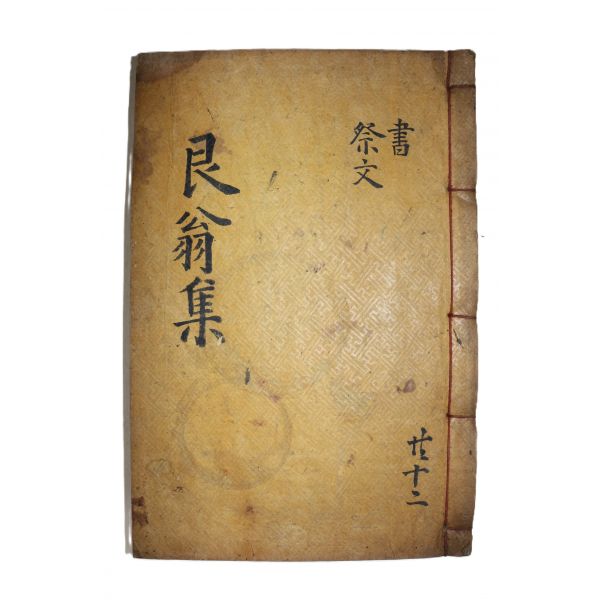 書
祭文
艮翁集
共十二